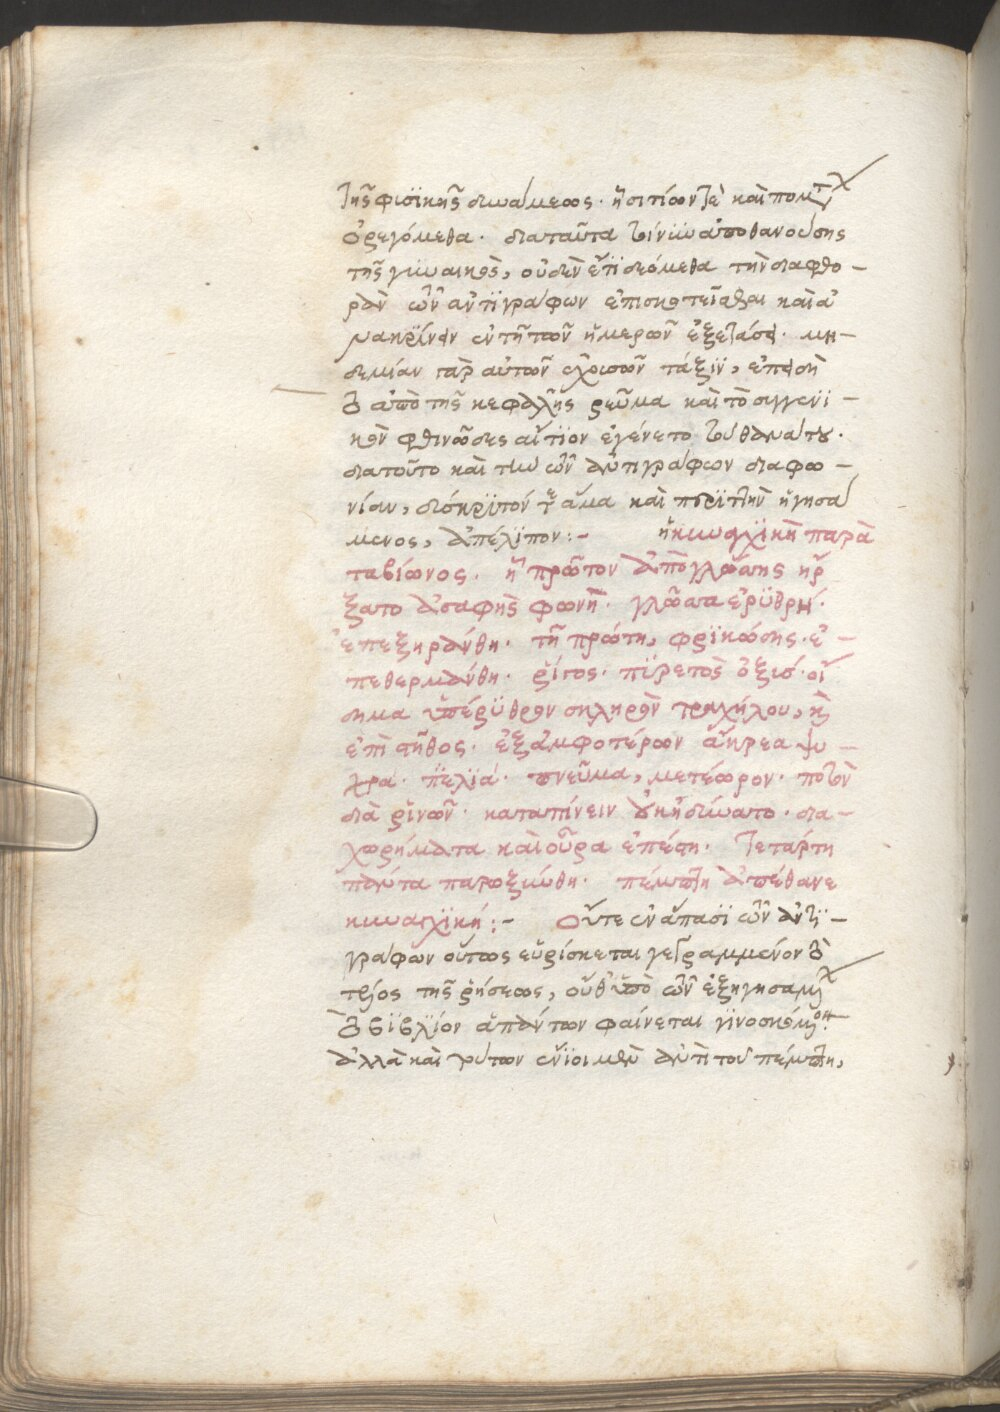 τῆς φυσικῆς δυνάμεως· ᾗ σιτίων τὲ καὶ πομάτ
ὀρεγόμεθα· διαταῦτα τοίνυν ἀποθανούσης
τῆς γυναικὸς, οὐδὲν ἔτι δεόμεθα τὴν διαφθο-
ρὰν τῶν ἀντιγράφων ἐπισκεπτεῖσθαι καὶ ἀ
νακρίνειν ἐν τῇ τῶν ἡμερῶν ἐξετάσει· μη-
δεμίαν γὰρ αὐτῶν ἐχουσῶν τάξιν, ἐπειδὴ
τὸ ἀπὸ τῆς κεφαλῆς ῥεῦμα καὶ τὸ συγγενι-
κὸν φθινῶδες αἴτιον ἐγένετο τοῦ θανάτου.
διατοῦτο καὶ τὴν τῶν ἀντιγράφων διαφω-
νίαν, δύσκριτόν τε ἅμα καὶ περιττὴν ἡγησά
μενος, ἀπέλιπον:- ἡ κυναγχικὴ παρὰ
τα βίωνος. ᾗ πρῶτον ἀπὸ γλώσσης ἤρ
ξατο ἀσαφὴς φωνὴ. γλῶσσα ἐρυθρή.
ἐπεξηράνθη. τῇ πρώτη, φρικώδης. ἐ-
πεθερμάνθη. ῥίγος. πυρετὸς ὀξύς. οἴ
δημα ὑπέρυθρον σκληρὸν τραχήλου, καὶ
ἐπὶ στῆθος. ἐξ ἀμφοτέρων ἄκρεα ψυ-
χρά. πελιά. πνεῦμα, μετέωρον. ποτὸν
διὰ ῥινῶν. καταπίνειν οὐκ ἠδύνατο. δια-
χωρήματα καὶ οὖρα ἐπέστη. τετάρτη
πάντα παρωξύνθη. πέμπτη ἀπέθανε
κυναγχική:- Οὔτε ἐν ἅπασι τῶν ἀντι-
γράφων οὕτως εὑρίσκεται γεγραμμένον τὸ
τέλος τῆς ῥήσεως, οὔθ' ὑπὸ τῶν ἐξηγησαμ
τὸ βιβλίον ἁπάντων φαίνεται γινοσκόμενον.
ἀλλὰ καὶ τούτων ἔνιοι μὲν ἀντὶ τοῦ πέμπτη,